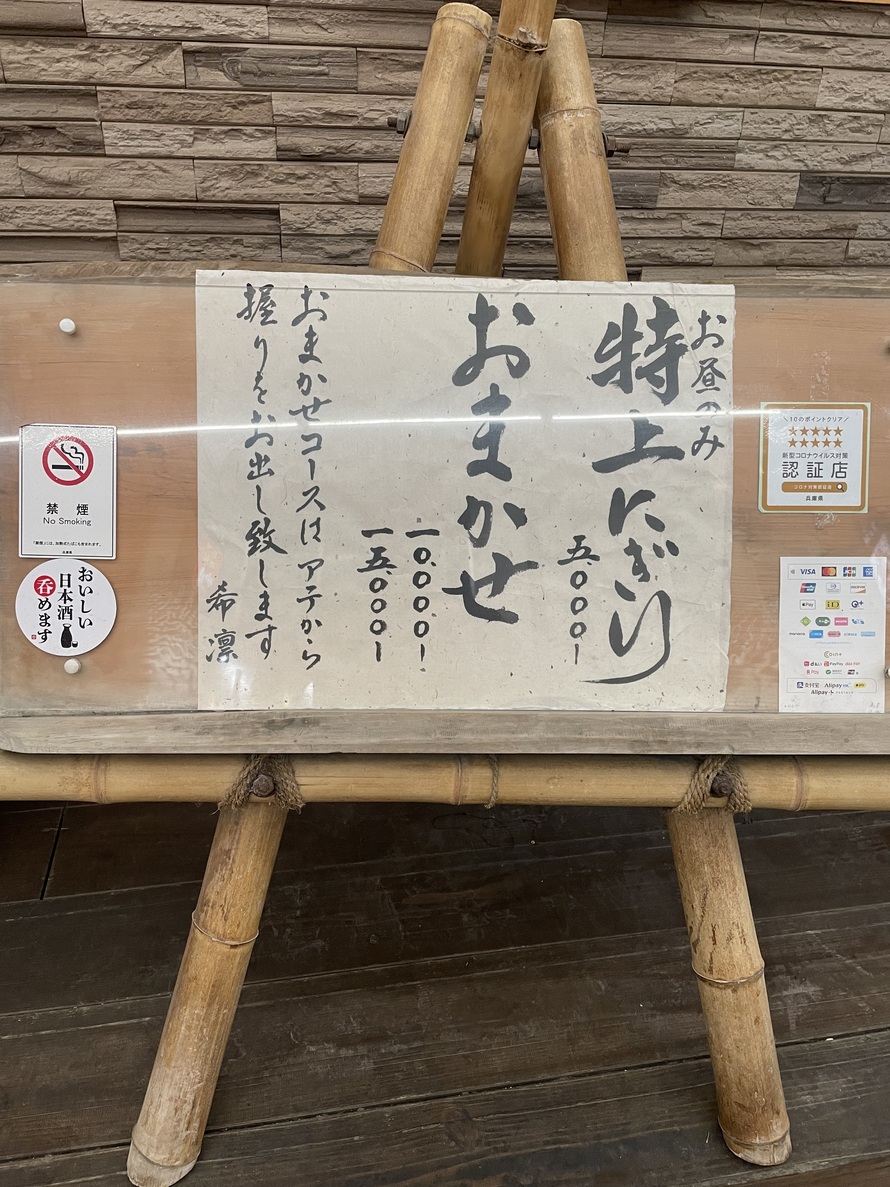 お昼のみ
特上にぎり
五.〇〇〇ー
おまかせ
一〇.〇〇〇ー
一五.〇〇〇ー
おまかせコースは アテから
握りをお出し致します
希凛
10のポイントクリア
新型コロナウイルス対策
認証店
コロナ対策認証店
兵庫県
禁煙
No Smoking
兵庫県
おいしい
日本酒
呑めます
VISA
Pay
iD
Coin+
d払い PayPay
R Pay
支付宝 Alipay
Alipay+